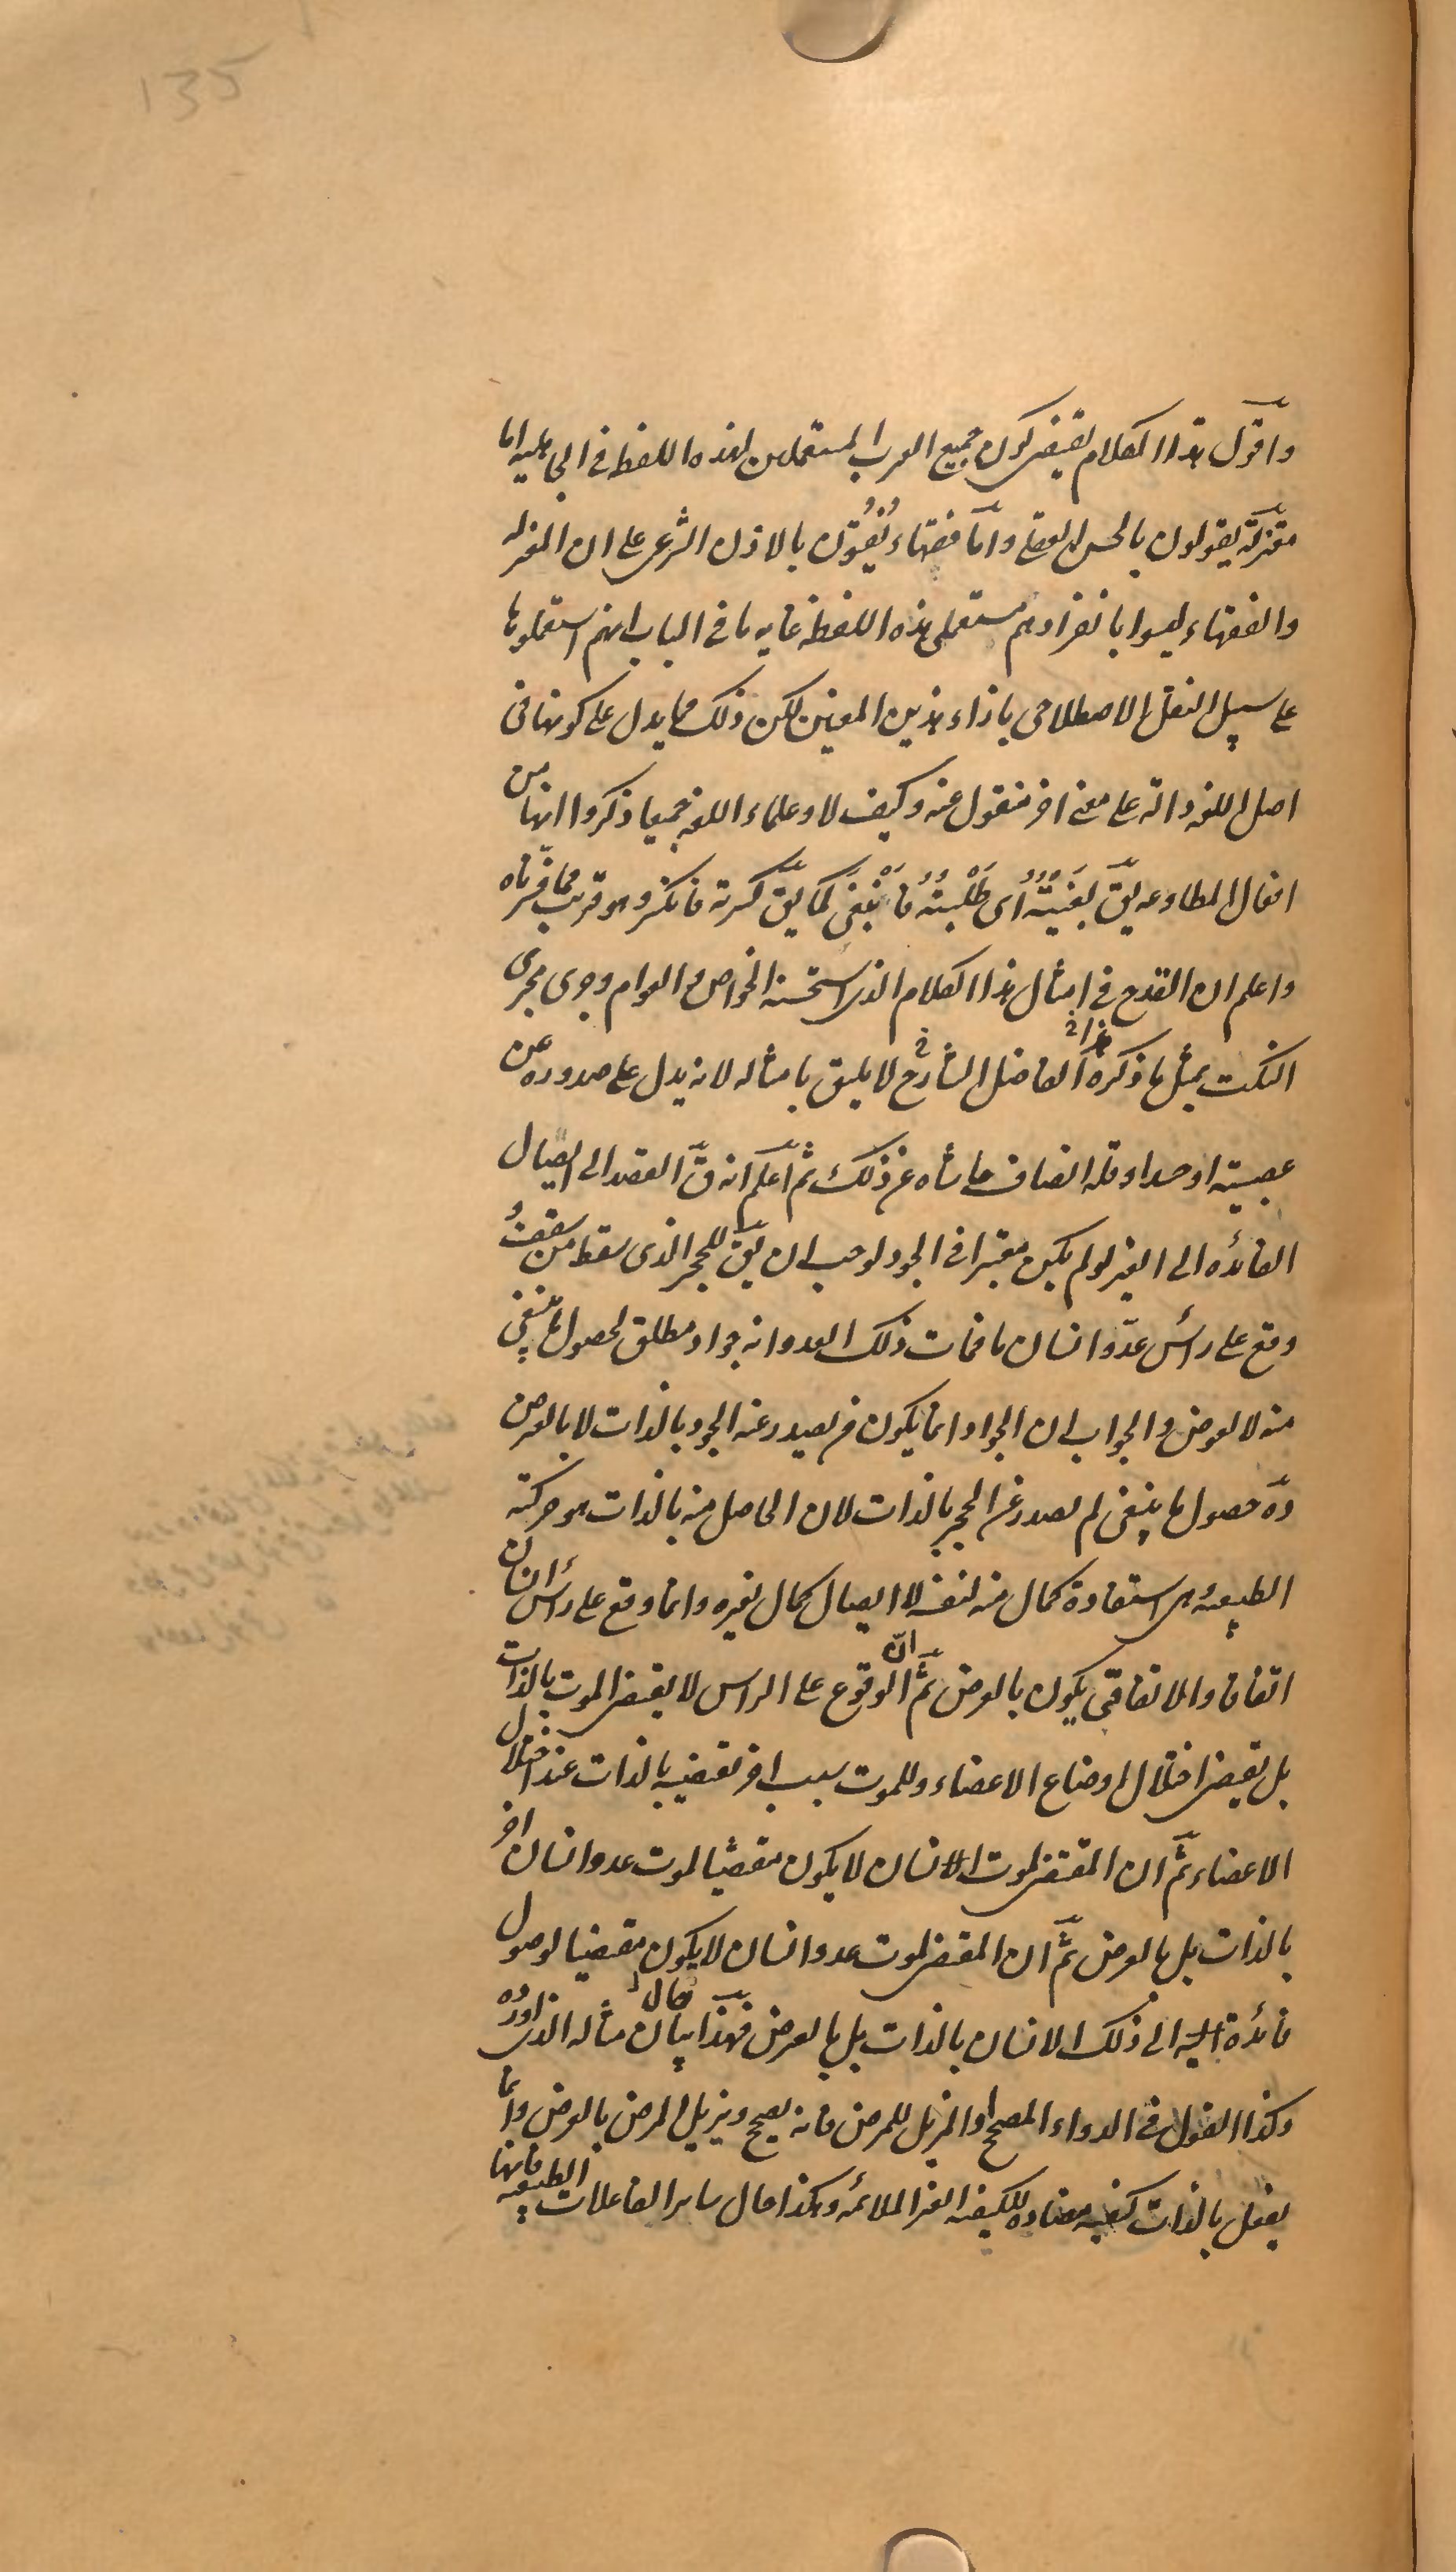 135
واقول هذا الكلام يقتضى كون جميع العرب المستعملين لهذه اللفظة فى الجاهلية اما
معتزلة يقولون بالحسن العقلى واما فقهاء يُفتُون بالاذن الشرعى على ان المعتزلة
والفقهاء ليسوا بانفرادهم مستعملى هذه اللفظة غاية ما فى الباب انهم استعملوها
على سبيل النقل الاصطلاحى بازاء هذين المعنيين لكن ذلك مما يدل على كونها فى
اصل اللغة دالة على معنى اخر منقول عنه وكيف لا وعلماء اللغة جميعا ذكروا انها من
افعال المطاوعة يق بَغَيتُهُ اى طَلَبْتُهُ فَانْبَغَى كما يق كسرته فانكسر وهو قريب مما فسرناه
واعلم ان القدح فى امثال هذا الكلام الذى استحسنه الخواص والعوام وجرى مجرى
النكت بمثل ما ذكره هذا الفاضل الشارح لا يليق بامثاله لانه يدل على صدوره عن
عصبية او حسد او قلة انصاف حاشاه عن ذلك ثم اعلم انه ق القصد الى ايصال
الفائده الى الغير لو لم يكن معتبرا فى الجود لوجب ان يق للحجر الذى سقط من سقف
وقع على رأس عدو انسان ما فمات ذلك العدو انه جواد مطلق لحصول ما ينبغى
منه لا لعوض والجواب ان الجواد انما يكون من يصدر عنه الجود بالذات لا بالعرض
وه حصول ما ينبغى لم يصدر عن الحجر بالذات لان الحاصل منه بالذات هو حركته
الطبيعية وهى استفادة كمال منه لنفسه لا ايصال كمال لغيره وانما وقع على رأس انسان
اتفاقا والاتفاقى يكون بالعرض ثم ان الوقوع على الراس لا يقتضى الموت بالذات
بل يقتضى اختلال اوضاع الاعضاء وللموت سبب اخر تقتضيه بالذات عند اختلال
الاعضاء ثم ان المقتضى لموت الانسان لا يكون مقتضيا لموت عدو انسان اخر
بالذات بل بالعرض ثم ان المقتضى لموت عدو انسان لا يكون مقتضيا لوصول
فائدة اليه الى ذلك الانسان بالذات بل بالعرض فهذا بيان حال مثاله الذى اورده
وكذا القول فى الدواء المصحح او المزيل للمرض فانه يصح ويزيل المرض بالعرض وانما
يفعل بالذات كيفية مضادة للكيفية الغير الملائمة وهكذا حال ساير الفاعلات الطبيعية فانها